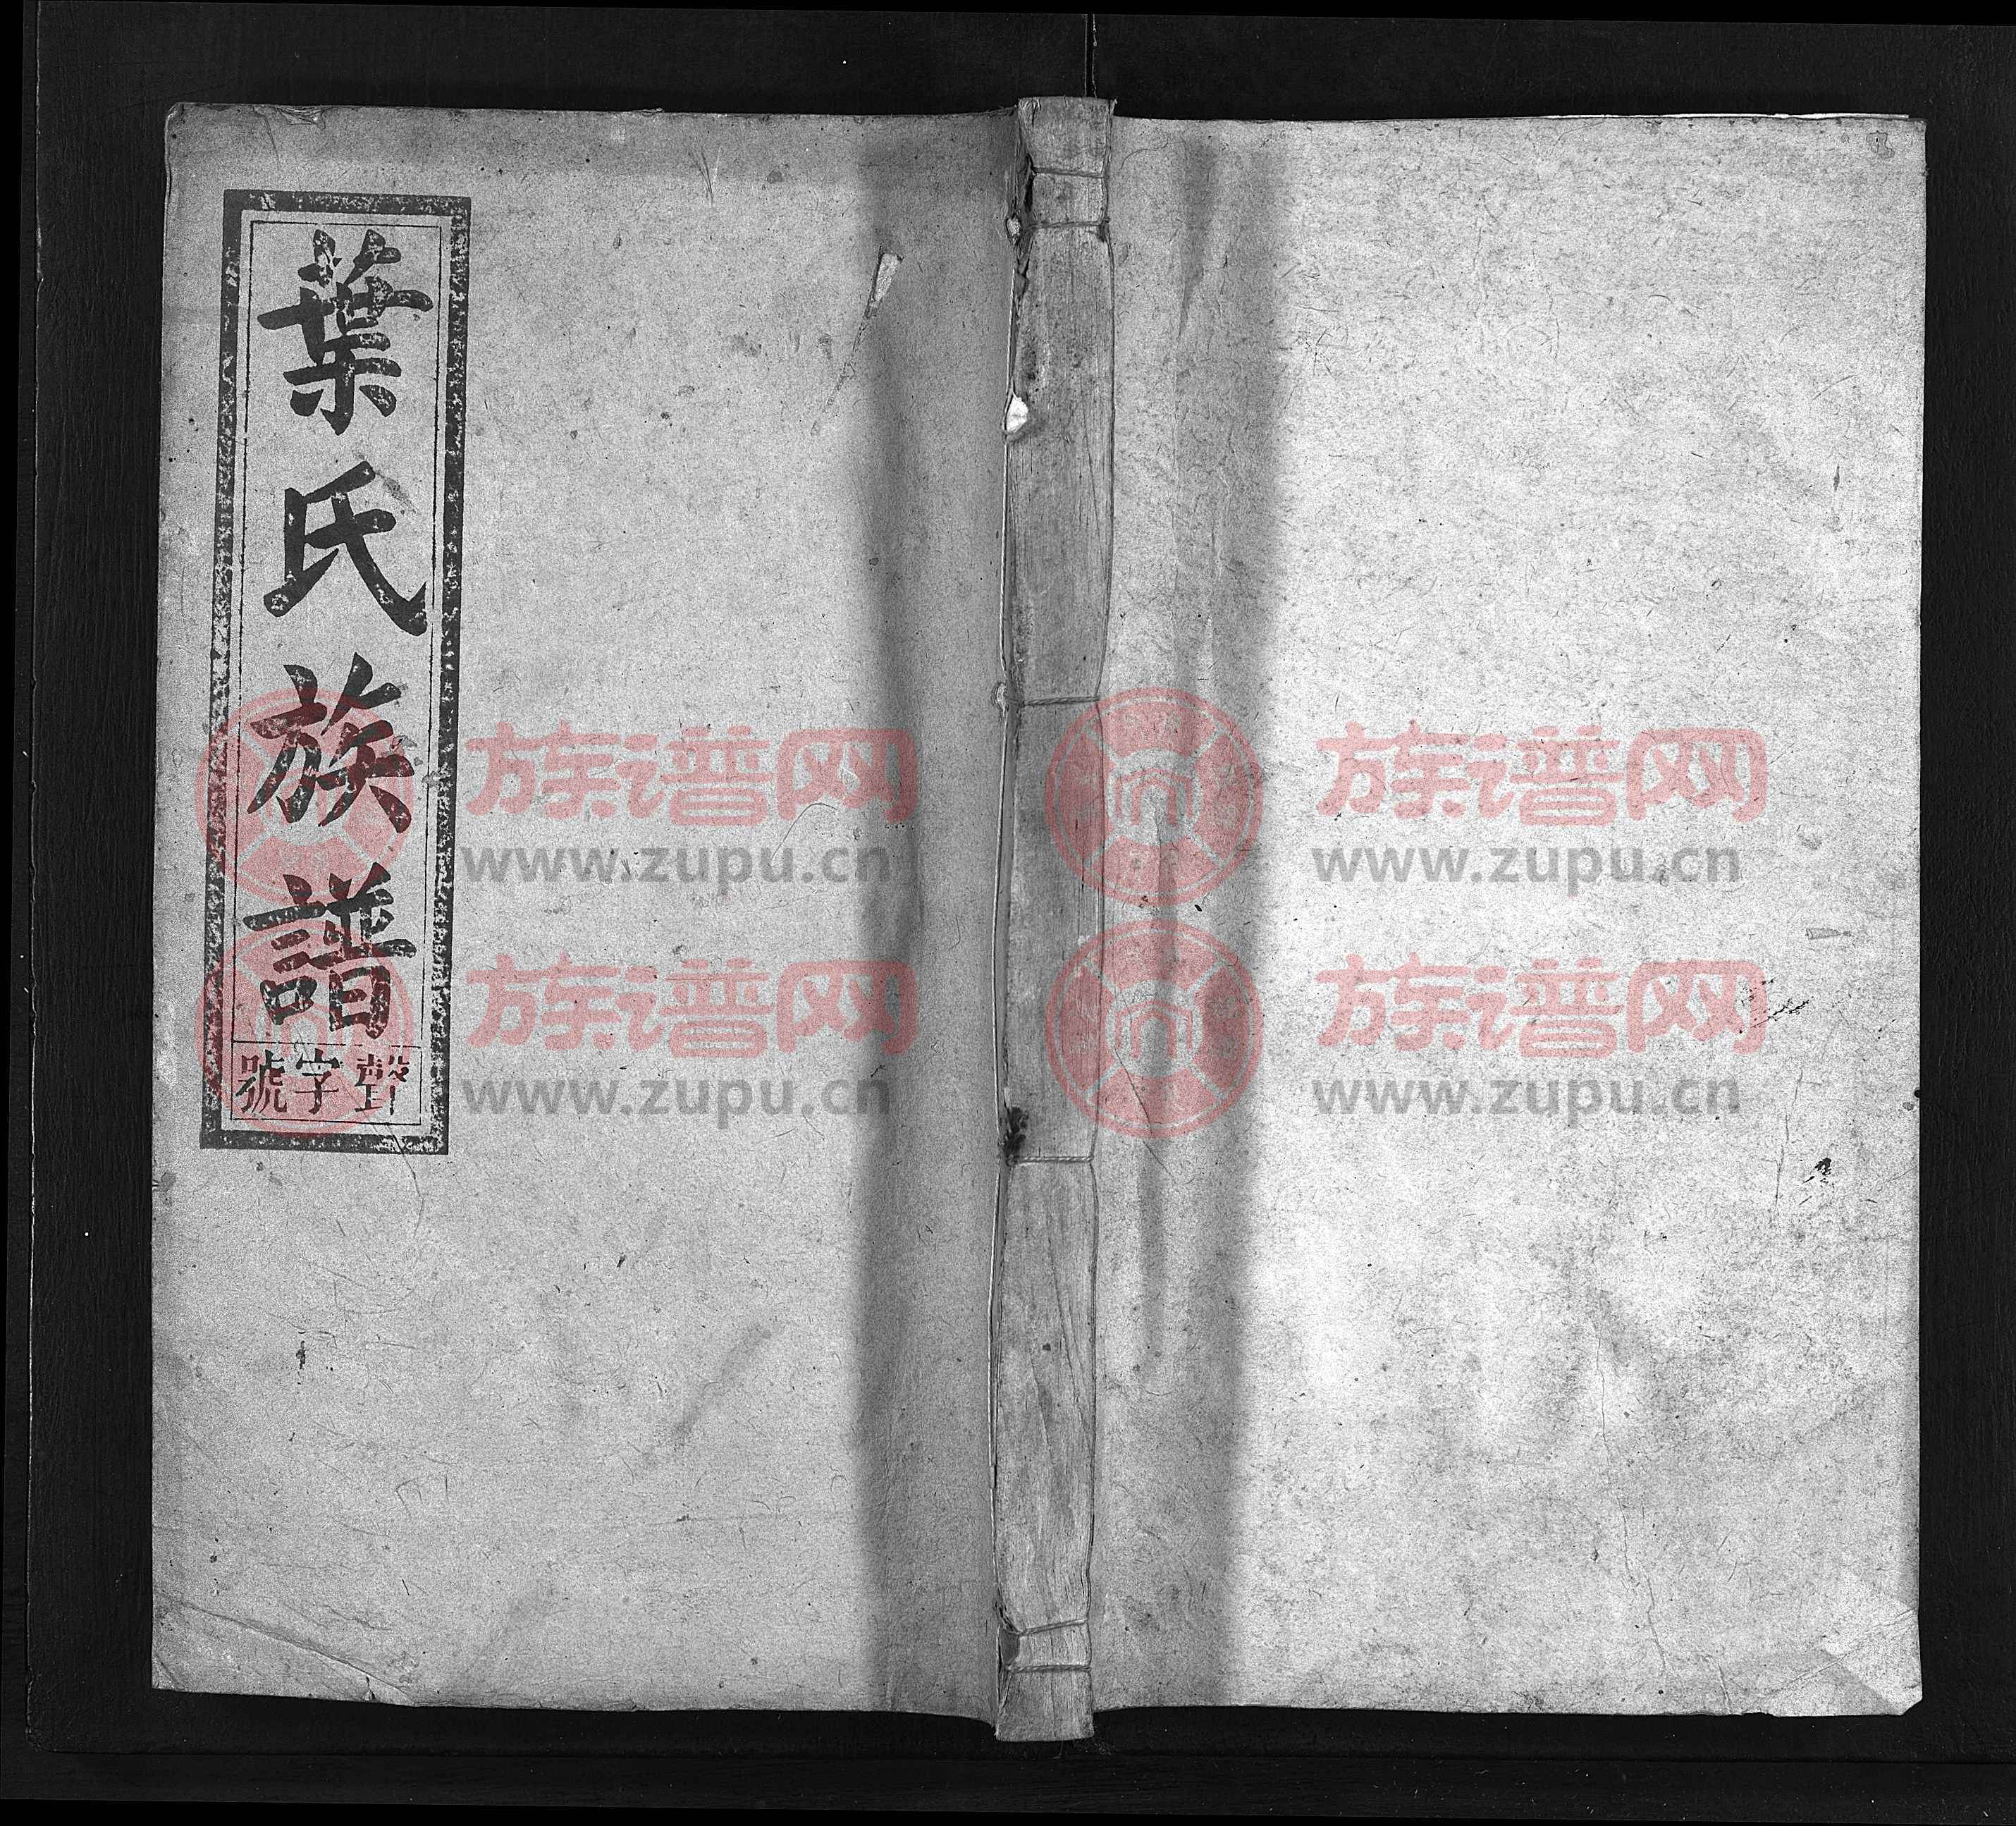 葉氏族譜
聲字號
族谱网 族谱网
www.zupu.cn www.zupu.cn
族谱网 族谱网
www.zupu.cn www.zupu.cn